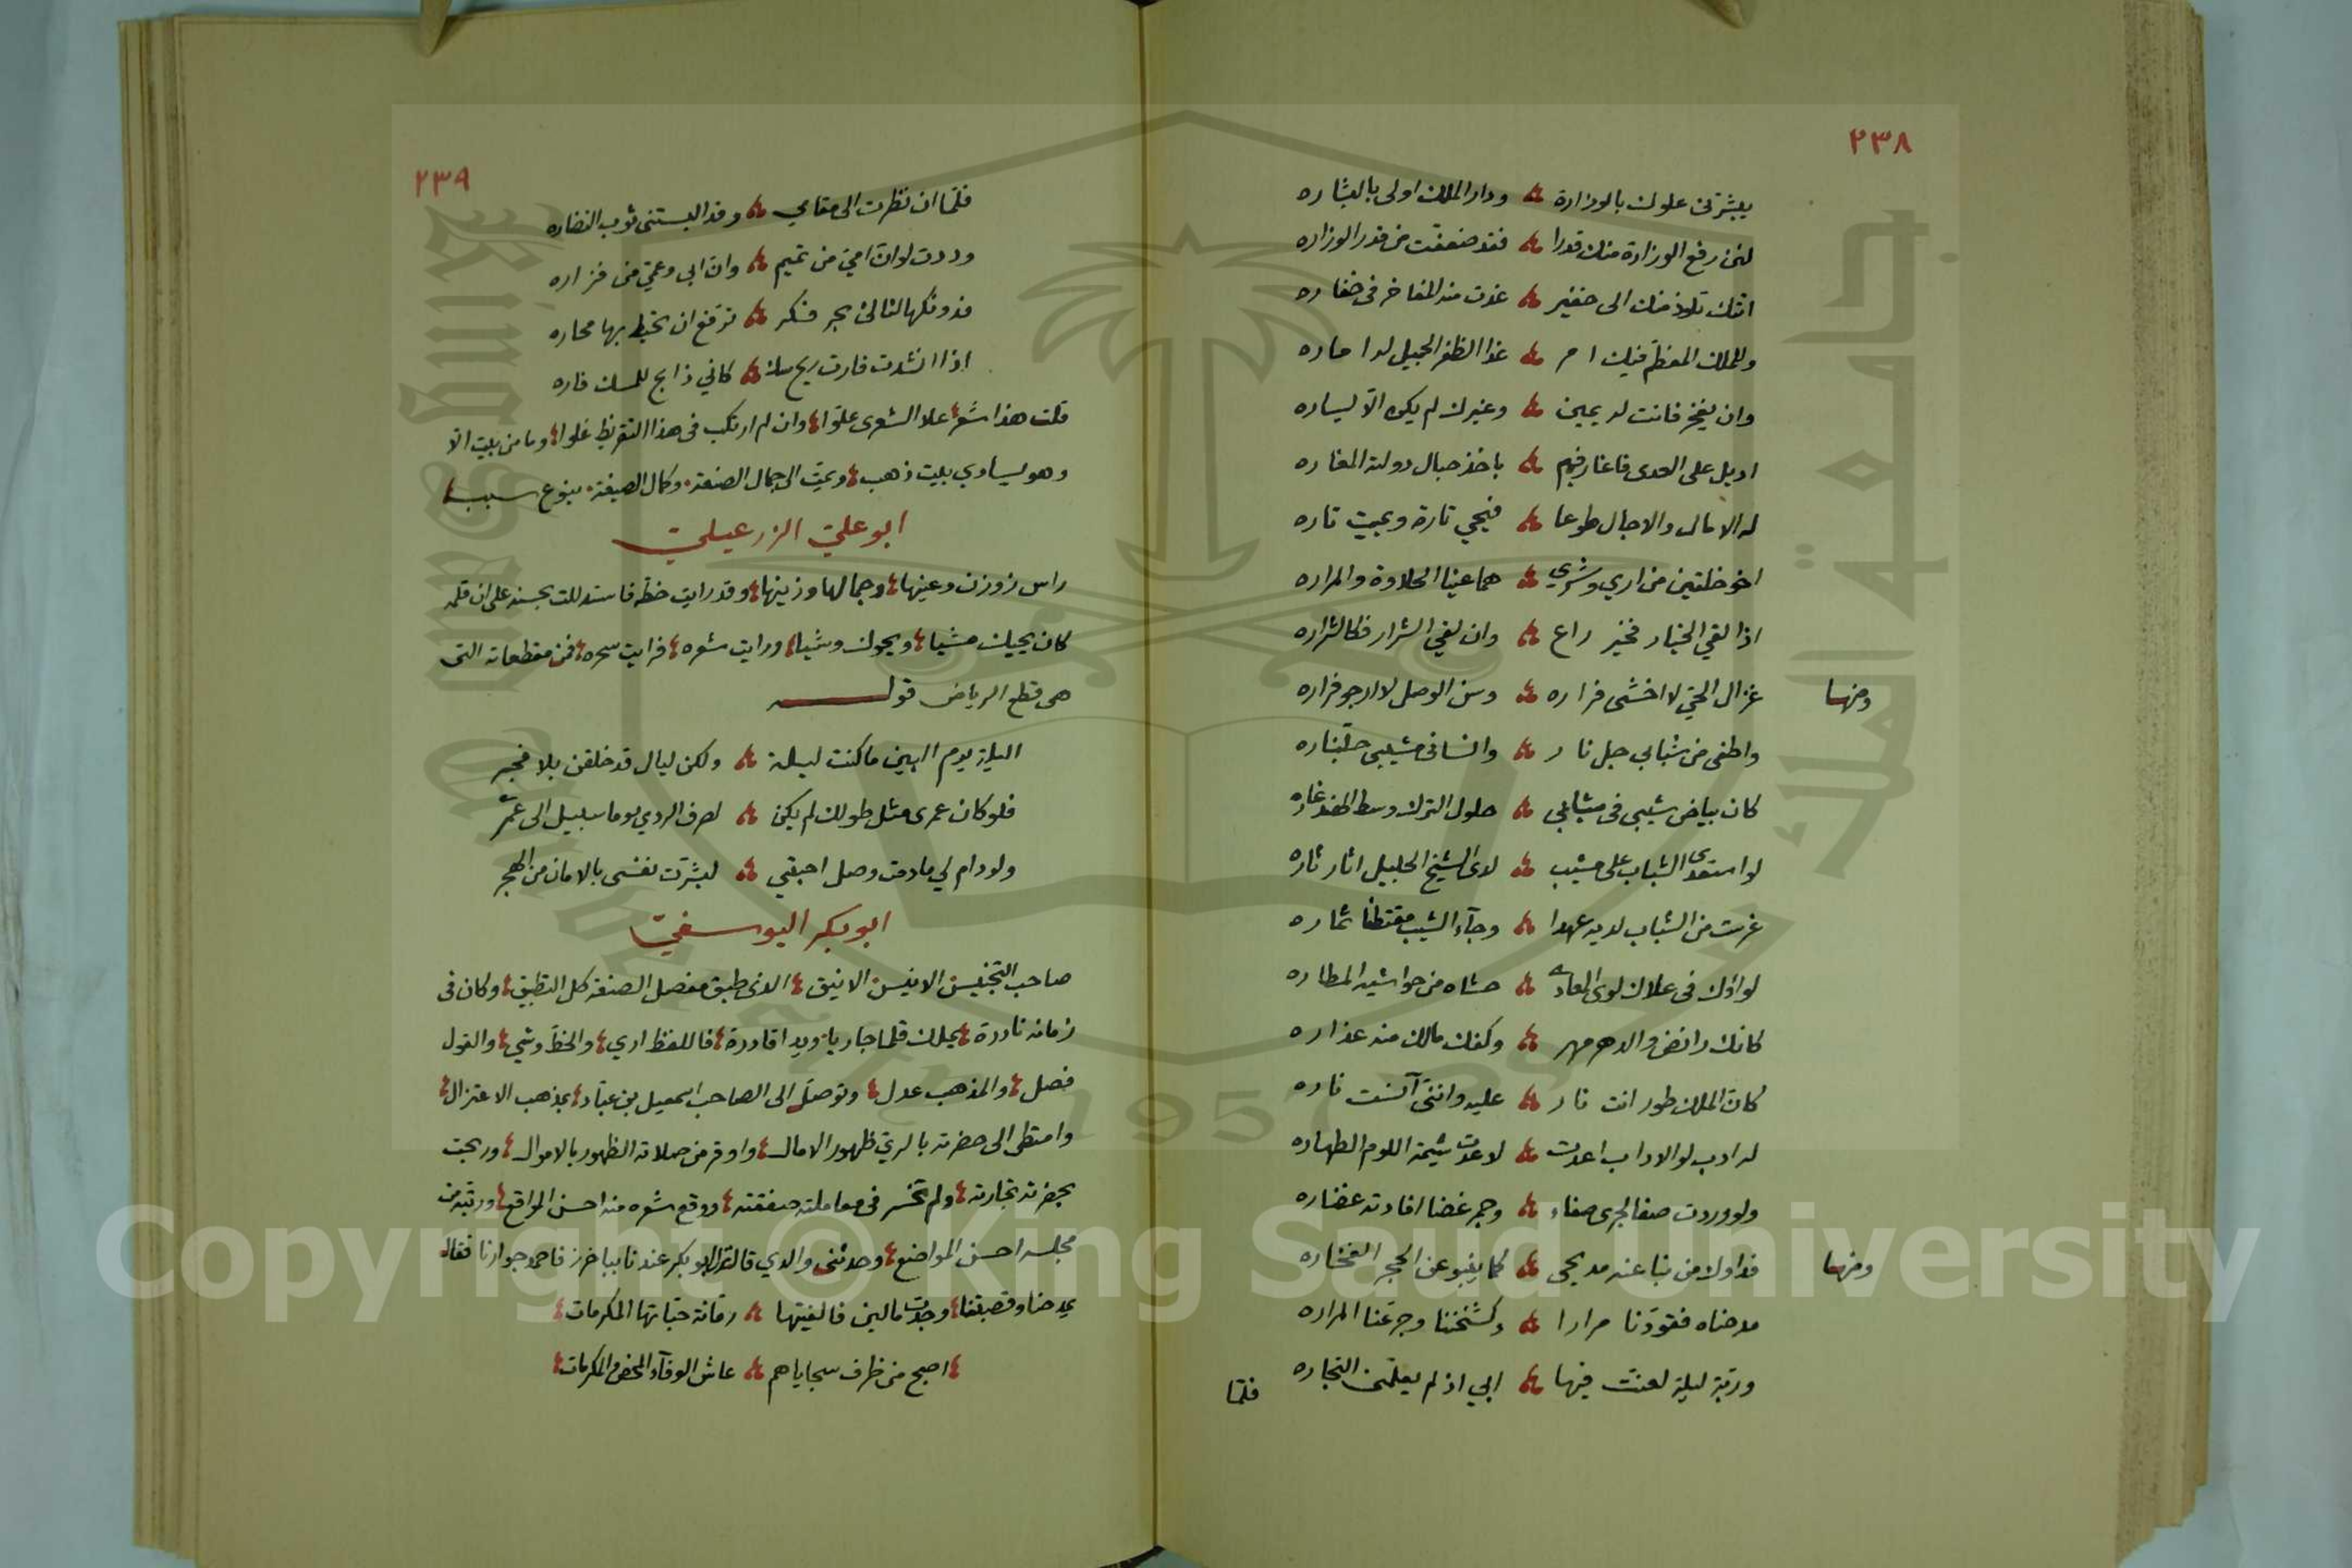 ٢٣٨
يبشرني علوك بالوزارة ؞ ودار الملك اولى بالبشاره
لئن رفع الوزارة منك قدرا ؞ فقد ضعفت من قدر الوزاره
اتتك تلوذ منك الى خفير ؞ غدت منه المفاخر في خفاره
وللملك المعظم فيك ا م ر ؞ غدا الظفر الجميل له اماره
وان يفخر فانت له يمين ؞ وغيرك لم يكن الا يساره
اديل على العدى فاغار فيهم ؞ باخذ حبال دولته المغاره
له الامال والاجال طوعا ؞ فيحيي تارة ويميت تاره
اخو خلقين من اري وشري ؞ هما عينا الحلاوة والمراره
اذا لقي الخيار فخير راع ؞ وان لقي الشرار فكالشراره
ومنها غزال الحي لا اخشى فراره ؞ وسن الوصل لا ارجو فراره
واطفى من شبابي جل نار ؞ وانسا في مشيبي جلناره
كان بياض شيبي في شبابي ؞ حلول الترك وسط الهند غاره
لو استعدى الشباب على مشيب ؞ لدى الشيخ الجليل اثار ثاره
غرست من الشباب لديه عهدا ؞ وجآء الشيب مقتطفا ثماره
لواؤك في علاك لوى المعادي ؞ حشاه من حواشيه المطاره
كانك رائض والدهر مهر ؞ وكفك مالك منه عذاره
كان الملك طور انت نار ؞ عليه وانني آنست ناره
له ادب لو الاداب اعدت ؞ لاعدت شيمة اللوم الطهاره
ولو وردت صفا لجرى صفاء ؞ وجمر غضا افادته غضاره
ومنها فداوك من نبا عنه مديحي ؞ كما ينبو عن الحجر الفخاره
مدحناه فقودنا مرارا ؞ وكشخننا وجرعنا المراره
وربة ليلة لعنت فيها ؞ ابي اذ لم يعلمني التجاره
فلما
٢٣٩
فلما ان نظرت الى مقامي ؞ وقد البستني ثوب النضاره
وددت لو ان امي من تميم ؞ وان ابي وعمي من فزاره
فدونكها لثالئ بحر فكر ؞ ترفع ان تحيط بها محاره
اذا انشدت فارت ريح مسك ؞ كاني ذابح للمسك فاره
قلت هذا شعر علا الشعرى علوا وان لم ارتكب في هذا التقريظ غلوا وما من بيت الا
وهو يساوي بيت ذهب ويمت الى جمال الصنعة وكمال الصيغة بنوع سبب
ابو علي الزرعيلي
راس زوزن وعينها وجمالها وزينها وقد رايت خطه فاستدللت بحسنه على ان قلمه
كان يحيك مشيا ويحوك وشيا ورايت شعره فرايت سحره فمن مقطعاته التي
هي قطع الرياض قولـــه
اليلة يوم البين ما كنت ليلة ؞ ولكن ليال قد خلقن بلا فجر
فلو كان عمرى مثل طولك لم يكن ؞ لصرف الردي يوما سبيل الى عمر
ولو دام لي ما دمت وصل احبتي ؞ لبشرت نفسى بالامان من الهجر
ابو بكر اليوسفي
صاحب التجنيس الانيس الانيق الذي طبق مفصل الصنعة كل التطبيق وكان في
زمانه نادرة يملك قلما جاريا ويدا قادرة فاللفظ اري والخط وشي والقول
فصل والمذهب عدل وتوصل الى الصاحب اسمعيل بن عباد بمذهب الاعتزال
وامتطى الى حضرته بالري ظهور الامال واوقر من صلاته الظهور بالاموال وربحت
بحضرته تجارته ولم تخسر في معاملته صفقته ووقع شعره منه احسن المواقع ورتبته من
مجلسه احسن المواضع وحدثني والدي قال نزل ابو بكر عندنا بباخرز فاحمد جوارنا فقال
يمدحنا وقصبتنا وجدت مالين فالفيتها ؞ رمانة حباتها المكرمات
اصبح من ظرف سجاياهم ؞ عاش الوفآء المحض والمكرمات
Copyright © King Saud University
جامعة الملك سعود
King Saud University
1957